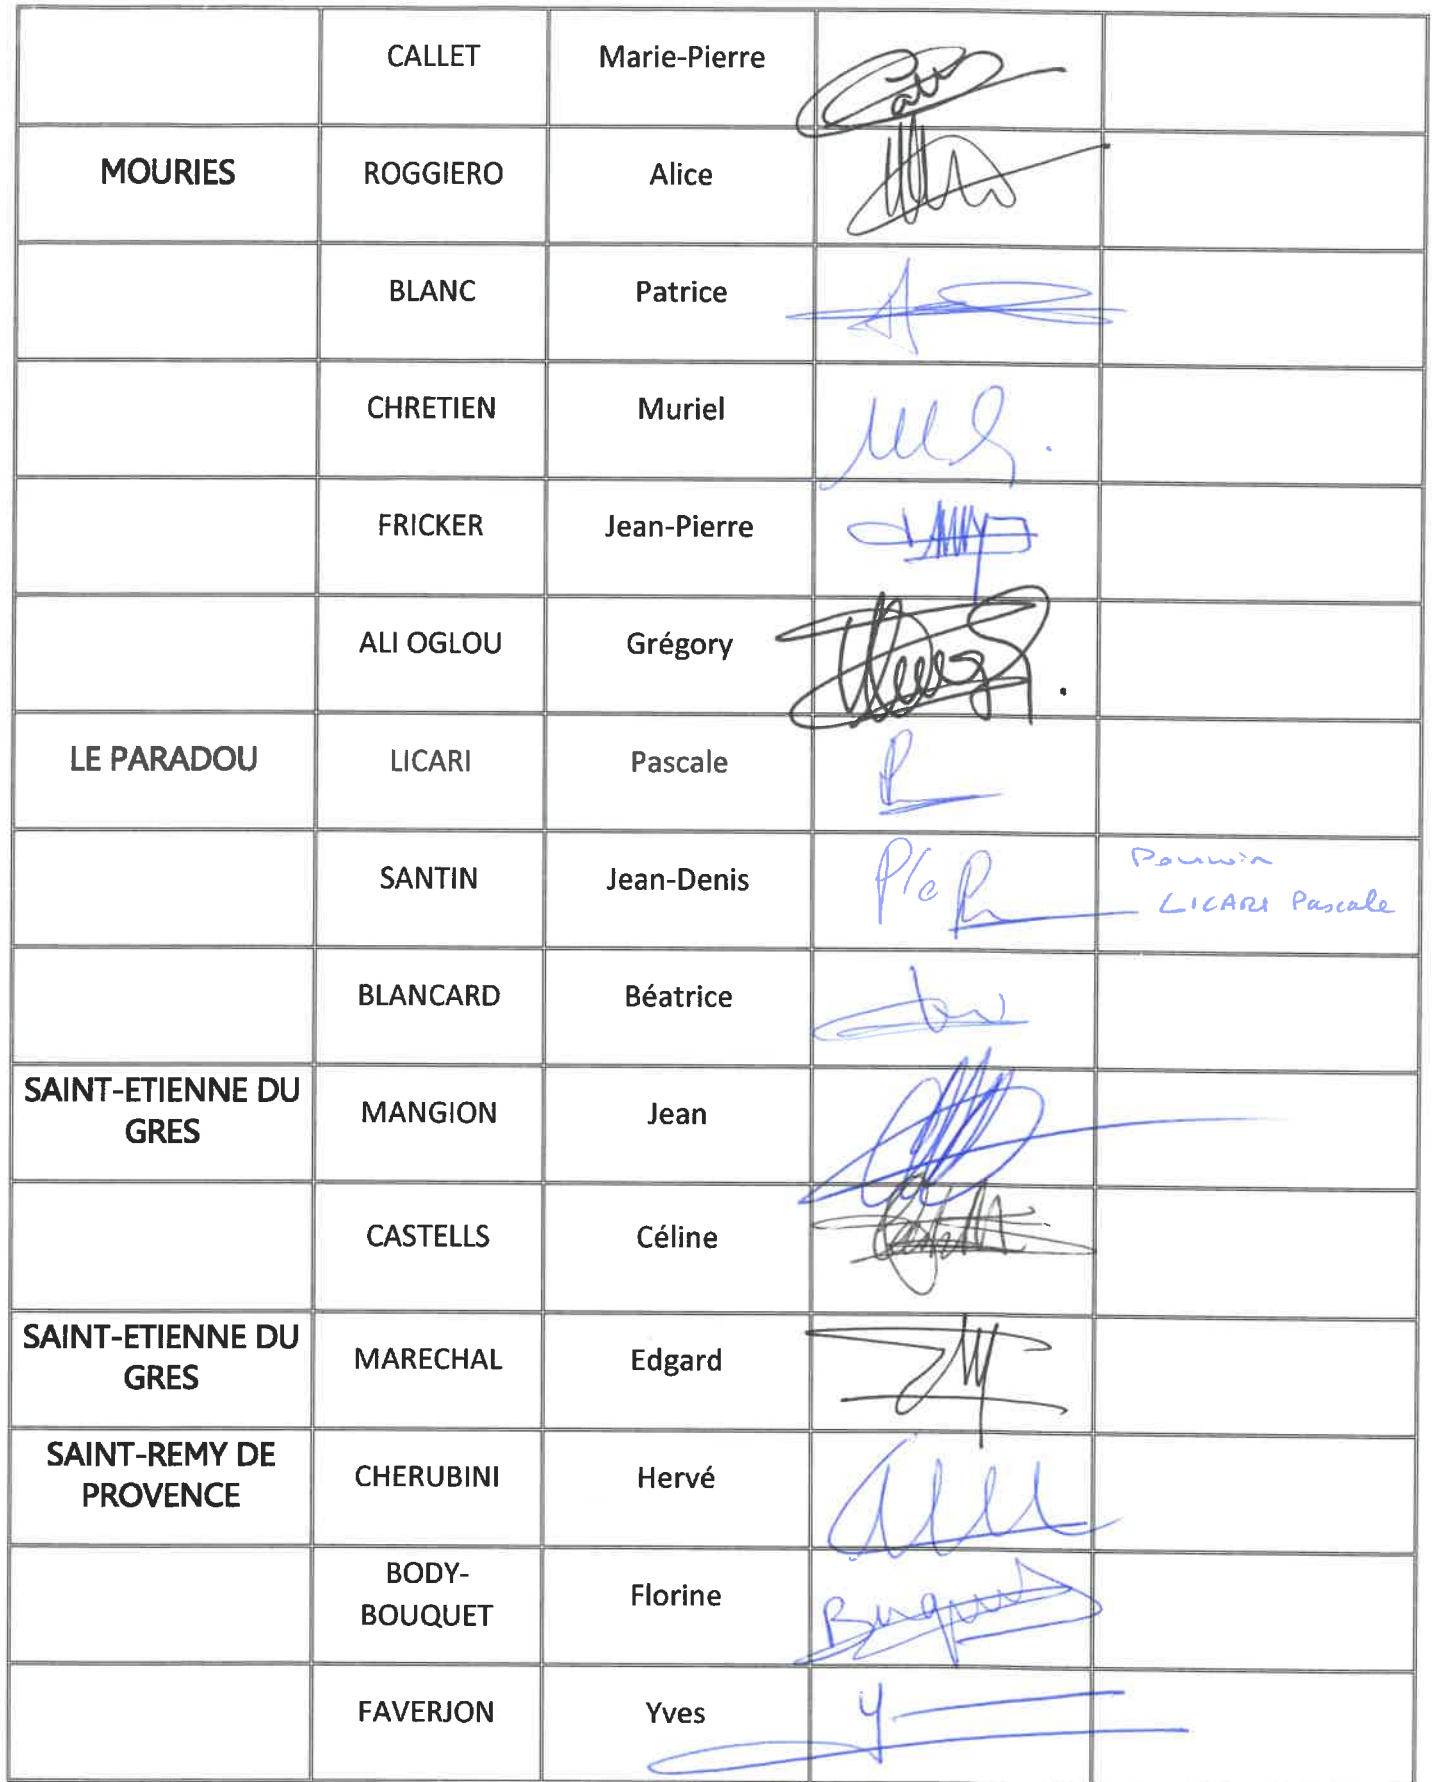 CALLET Marie-Pierre
MOURIES ROGGIERO Alice
BLANC Patrice
CHRETIEN Muriel
FRICKER Jean-Pierre
ALI OGLOU Grégory
LE PARADOU LICARI Pascale
SANTIN Jean-Denis P/o
LICARI Pascale
BLANCARD Béatrice
SAINT-ETIENNE DU
GRES MANGION Jean
CASTELLS Céline
SAINT-ETIENNE DU
GRES MARECHAL Edgard
SAINT-REMY DE
PROVENCE CHERUBINI Hervé
BODY-
BOUQUET Florine
FAVERJON Yves